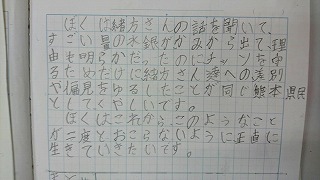 ぼくは緒方さんの話を聞いて、
すごい量の水銀がかみから出て、理
由も明らかだったのにチッソを守
るためだけに緒方さん達への差別
や偏見をゆるしたことが同じ熊本県民
としてくやしいです。
ぼくはこれから、このようなこと
が二度とおこらないように正直に
生きていきたいです。